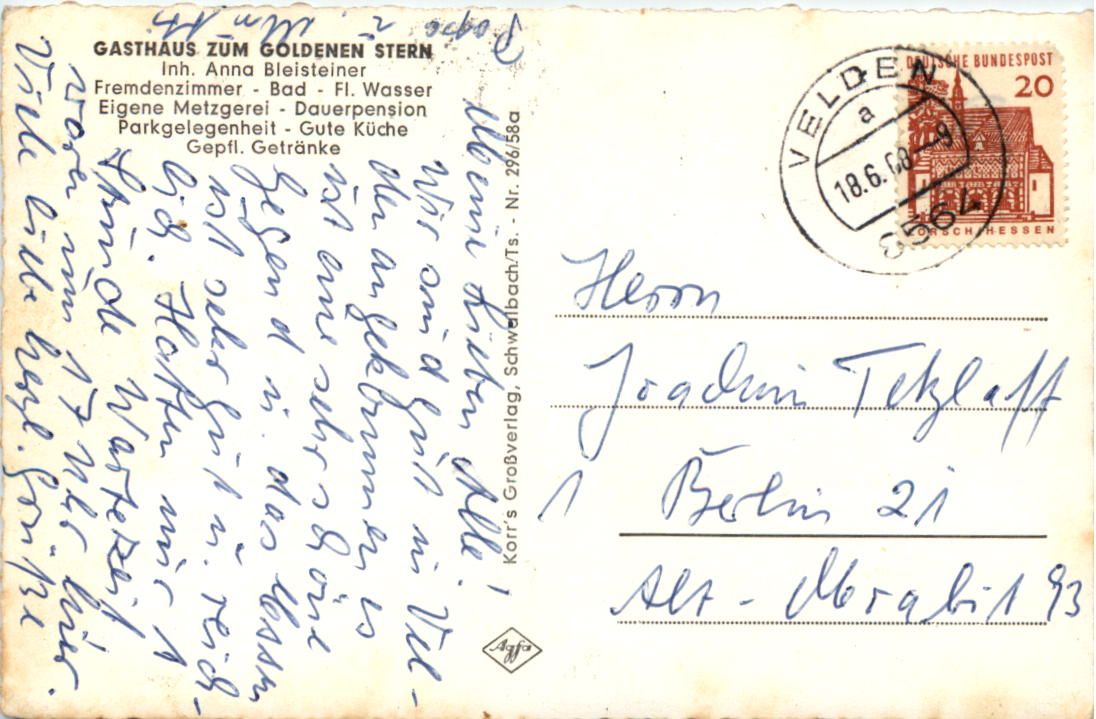 GASTHAUS ZUM GOLDENEN STERN
Inh. Anna Bleisteiner
Fremdenzimmer - Bad - Fl. Wasser
Eigene Metzgerei - Dauerpension
Parkgelegenheit - Gute Küche
Gepfl. Getränke
Meine Lieben Alle!
Wir sind gut in Vel-
den angekommen es
ist eine sehr schöne
Gegend u. das Essen
ist sehr gut u. reich-
lich. Hatten nur 1
Stunde Wartezeit
waren um 17 Uhr hier.
Viele liebe herzl. Grüße
Papa
u. Mutti
Korr's Großverlag, Schwalbach/Ts. - Nr. 296/58a
Agfa
VELDEN
a
18.6.68-9
8564
DEUTSCHE BUNDESPOST
20
LORSCH/HESSEN
Herrn
Joachim Tetzlaff
1 Berlin 21
Alt-Moabit 93